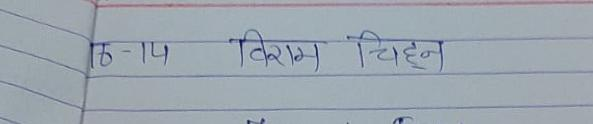 ਨਿ-14 विराम चिह्न